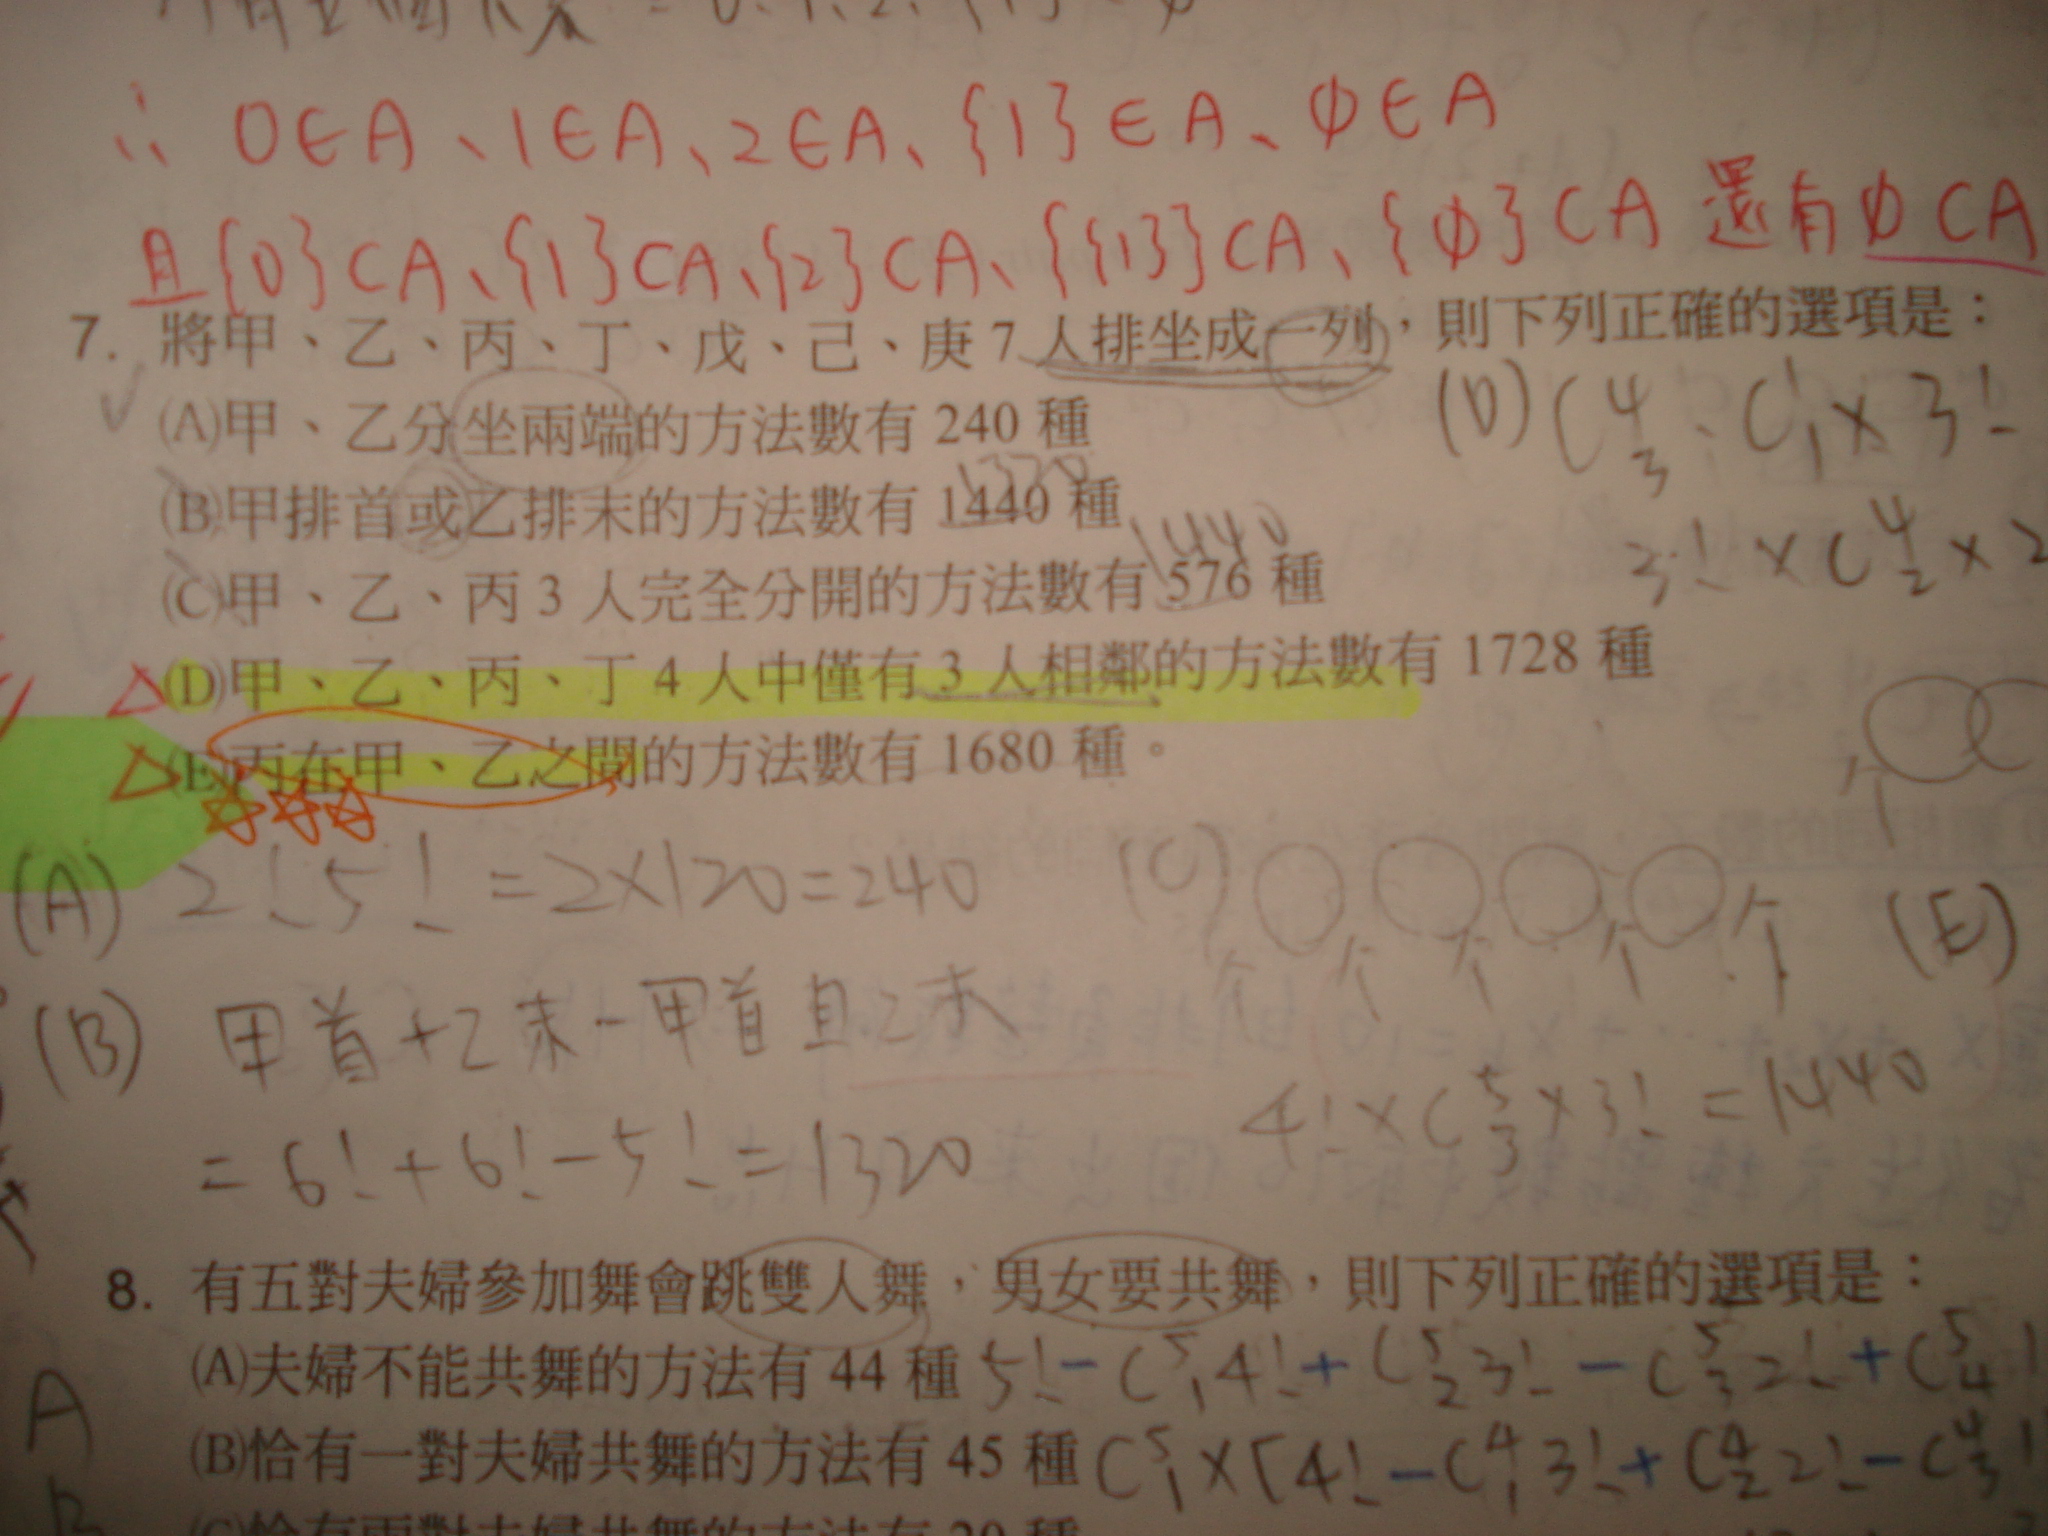 ∴ 0∈A、1∈A、2∈A、{1}∈A、φ∈A
且{0}⊂A、{1}⊂A、{2}⊂A、{{1}}⊂A、{φ}⊂A 還有φ⊂A
7. 將甲、乙、丙、丁、戊、己、庚 7 人排坐成一列，則下列正確的選項是：
(A)甲、乙分坐兩端的方法數有 240 種
(D) C⁴₃·C¹₁×3!
1320
(B)甲排首或乙排末的方法數有 1440 種
3!×C⁴₂×2
1440
(C)甲、乙、丙 3 人完全分開的方法數有 576 種
(D)甲、乙、丙、丁 4 人中僅有 3 人相鄰的方法數有 1728 種
(E)丙在甲、乙之間的方法數有 1680 種。
(A) 2!5! =2×120=240
(C)
(E)
(B) 甲首+乙末-甲首且乙末
4!×C⁵₃×3! =1440
=6!+6!-5!=1320
8. 有五對夫婦參加舞會跳雙人舞，男女要共舞，則下列正確的選項是：
(A)夫婦不能共舞的方法有 44 種 5!-C⁵₁4!+C⁵₂3!-C⁵₃2!+C⁵₄1
A
(B)恰有一對夫婦共舞的方法有 45 種 C⁵₁×[4!-C⁴₁3!+C⁴₂2!-C⁴₃1!
B
(C)恰有兩對夫婦共舞的方法有 20 種